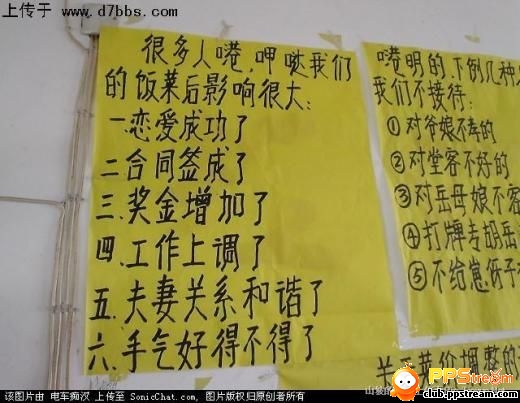 上传于 a
www.d7bbs.com
很多人嗯,呷哒我们
的饭菜后影响很大:
一恋爱成功了
二合同签成了
三.奖金增加了
四.工作上调了
五.夫妻关系和谐了
六.手气好得不得了
明的.下例几种
我们不接待:
①对爷娘不孝的
②对堂客不好的
③对岳母娘不
④打牌专胡
⑤不给崽伢子
价调整的
PPStream
club.ppstream.com
该图片由 电车痴汉 上传至 SonicChat.com, 图片版权归原创者所有